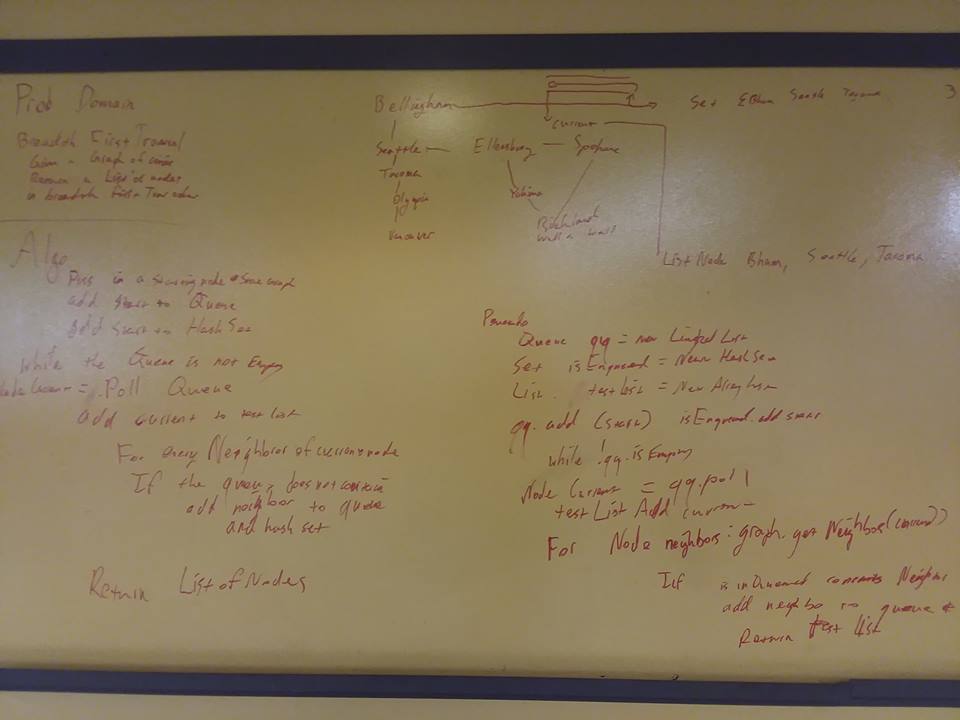 Prob Domain
Breadth First Traversal
Given a Graph of
Return a List of nodes
in breadth first
Algo
Pass in a starting node
add start to Queue
add start to HashSet
while the Queue is not Empty
= .Poll Queue
add current to test list
For every Neighbor of current node
If the queue does not contain
add neighbor to queue
and hash set
Return List of Nodes
Bellingham
Seattle
Tacoma
Olympia
Vancouver
Ellensburg
Spokane
Yakima
Richland
walla walla
current
Set Bham Seattle Tacoma
3
List Node Bham, Seattle, Tacoma
Pseudo
Queue qq = new Linked List
Set isEnqueued = New HashSet
List testList = New ArrayList
qq.add (start) isEnqueued.add start
while !qq.isEmpty
Node Current = qq.pool
test List Add current
For Node neighbors: graph.get Neighbor(current)
If Neighbor
add neighbo to queue
Return test list